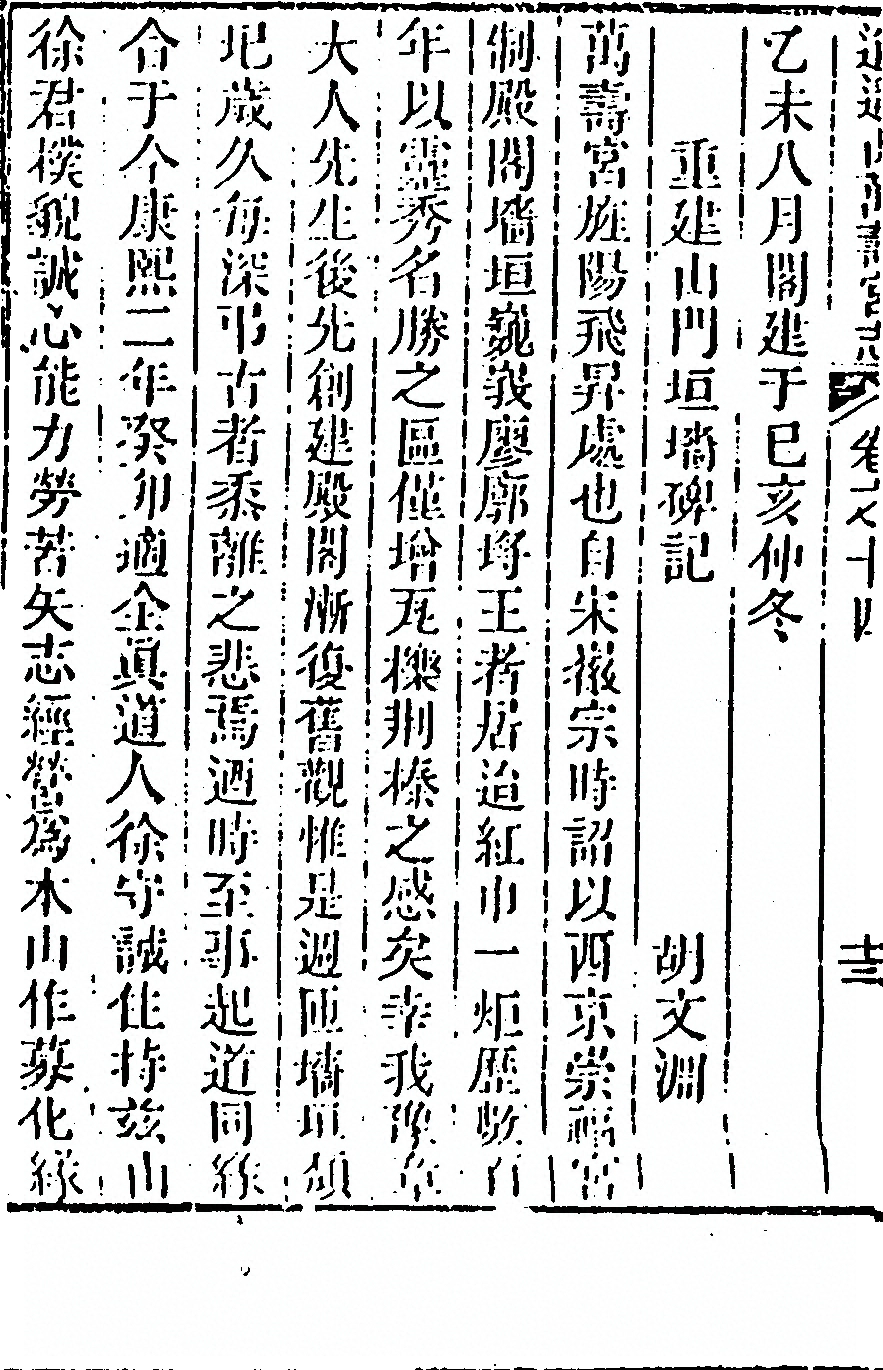 逍遙山萬壽宮志 卷之十四 十三
乙未八月閣建于巳亥仲冬
重建山門垣墻碑記 胡文淵
萬壽宮旌陽飛昇處也自宋徽宗時詔以西京崇福宮
制殿閣墻垣巍峩廖廓埓王者居迨紅巾一炬歷數百
年以靈秀名勝之區僅增瓦檪荆榛之感矣幸我豫章
大人先生後先創建殿閣漸復舊觀惟是週匝墻垣頽
圯歲久每深弔古者黍離之悲焉迺時至事起道同緣
合于今康熙二年癸卯適全眞道人徐守誠住持兹山
徐君樸貌誠心能力勞苦矢志經營爲本山作募化緣